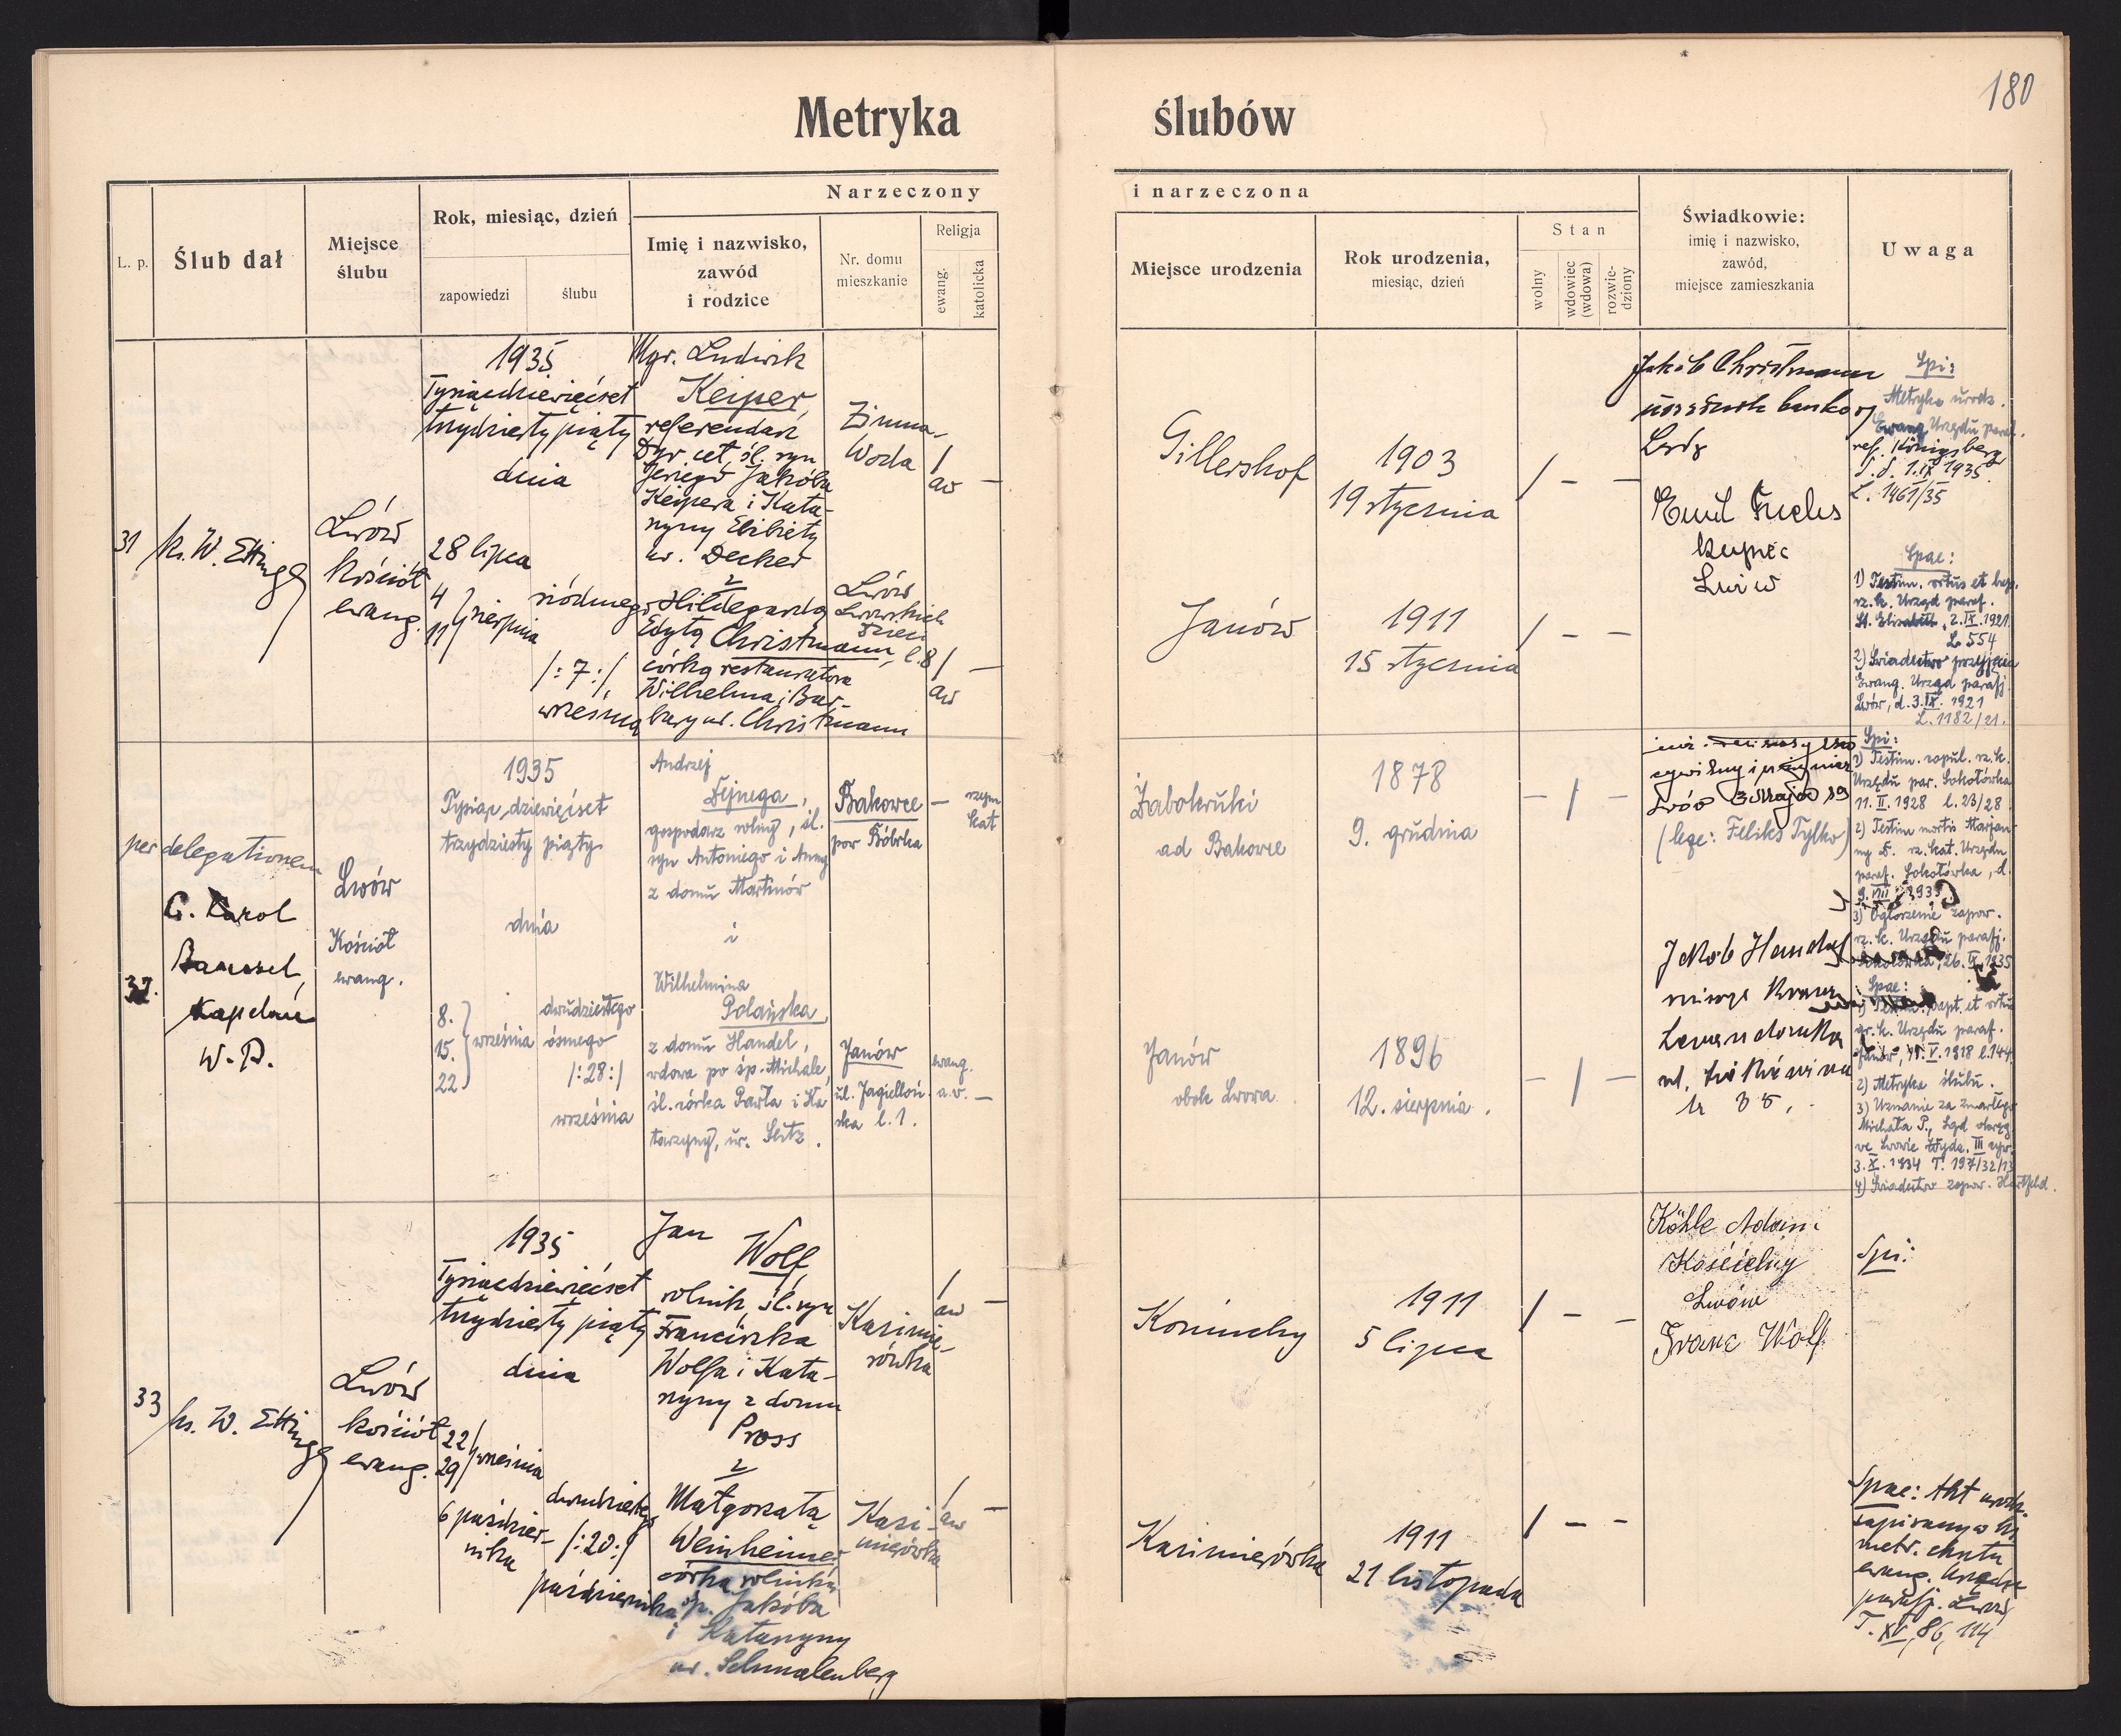 180
Metryka ślubów
L. p.
Ślub dał
Miejsce
ślubu
Rok, miesiąc, dzień
zapowiedzi
ślubu
Narzeczony
Imię i nazwisko,
zawód
i rodzice
Nr. domu
mieszkanie
Religja
ewang.
katolicka
i narzeczona
Miejsce urodzenia
Rok urodzenia,
miesiąc, dzień
Stan
wolny
wdowiec
(wdowa)
rozwie-
dziony
Świadkowie:
imię i nazwisko,
zawód,
miejsce zamieszkania
Uwaga
31
ks. W. Ettinger
Lwów
kościół
ewang.
1935
Tysiącdziewięćset
trzydziesty piąty
dnia
28 lipca
4
11 } sierpnia
siódmego
/: 7 :/
września
Mgr. Ludwik
Keiper,
referendarz
Dyr. cet, śl. syn
Jeriego Jakóba
Keipera i Kata-
rzyny Elżbiety
ur. Decker
z
Hildegardą
Edytą Christmann,
córką restauratora
Wilhelma i Bar-
bary ur. Christmann
Zimna-
Woda
Lwów
Lwowskich
Dzieci
l. 8
/
aw
—
/
aw
—
Gillershof
Janów
1903
19 stycznia
1911
15 stycznia
/ – –
/ – –
Jakób Christmann
urzędnik bankowy
Emil Fuchs
kupiec
Lwów
Spi:
Metryka urodz.
Ewang. Urzędu paraf.
ref. Königsberg
d. d. 1.IX 1935
L. 1461/35
Spae:
1) Testim. ortus et bapt.
rz. k. Urząd paraf.
St. Elisabeth, 2.IX.1921
L. 554
2) Świadectwo przyjęcia
Ewang. Urząd parafj.
Lwów, d. 3.IX. 1921
L. 1182/21.
32.
per delegationem
G. Karol
Kapelan
W. P.
Lwów
Kościół
ewang.
1935
Tysiąc dziewięćset
trzydziesty piąty
dnia
8.
15.
22. } września
dwudziestego
ósmego
/: 28 :/
września
Andrzej
Dejnega,
gospodarz rolny, śl.
syn Antoniego i Anny
z domu Martinów
i
Wilhelmina
Polańska
z domu Handel,
wdowa po śp. Michale,
śl. córka Pawła i Ka
tarzyny, ur. Seitz.
Bakowce
pow Bóbrka
Janów
ul. Jagielloń.
ska l. 1.
—
rzym
kat
ewang.
a.v. —
Żabokruki
ad Bakowce
Janów
obok Lwowa
1878
9. grudnia
1896
12. sierpnia.
– / –
– / –
cywilny inżynier
Lwów 3 Maja 19
(lege: Feliks Tylko)
Jakob Handel
Lewandówka
Spi:
1) Testim. copul. rz. k.
Urzędu par. Sokołówka
11. II. 1928 l. 23/28
2) Testim mortis Marjan-
ny D. rz. kat. Urzędu
paraf. Sokołówka, d.
9. VIII 1933
3) Ogłoszenie zapow.
rz. k. Urzędu parafj.
Sokołówka, 26. IX. 1935
Spae:
1) Testim. bapt. et ortus
gr. k. Urzędu paraf.
Janów, 11. V. 1918 l. 144
2) Metryka ślubu.
3) Uznanie za zmarłego
Michała P., Sąd okręg.
we Lwowie Wydz. III cyw.
3. X. 1934 T. 197/32/13
4) Świadectwo zapow. Hartfeld.
33
ks. W. Ettinger
Lwów
kościół
ewang.
1935
Tysiącdziewięćset
trzydziesty piąty
dnia
22
29 / września
6 paździer-
nika
dwudziestego
/: 20 :/
października
Jan
Wolf
rolnik, śl. syn
Franciszka
Wolfa i Kata-
rzyny z domu
Pross
z
Małgorzatą
Weinheimer
córką rolnika
śp. Jakóba
i Katarzyny
ur. Schmalenberg
Kazimie-
rówka
Kazi-
mierówka
/
aw
—
/
aw
—
Koniuchy
Kazimierówka
1911
5 lipca
1911
21 listopada
/ – –
/ – –
Köhle Adam
Kościelny
Lwów
Franz Wolf
Spi:
Spae: Akt urodz.
zapisany w ks.
metr. chrztu
ewang. Urzędu
parafj. Lwów,
T. XV, 86, 114